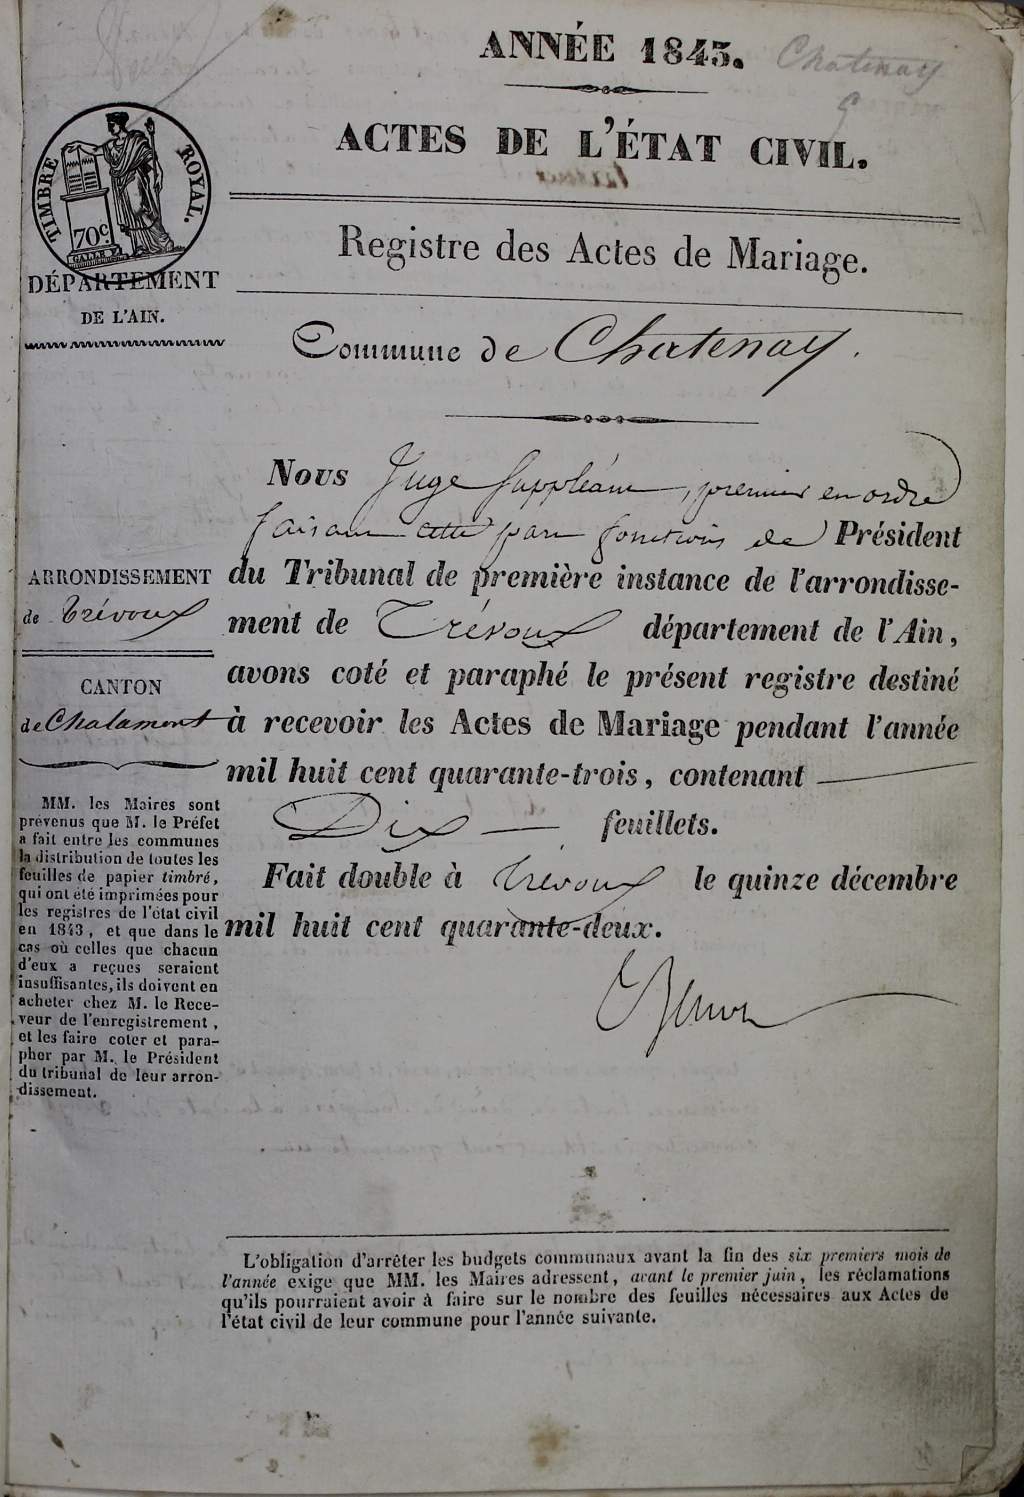 ANNÉE 1843.
Chatenay
ACTES DE L'ÉTAT CIVIL.
TIMBRE ROYAL.
70c.
Registre des Actes de Mariage.
DÉPARTEMENT
DE L'AIN.
Commune de Chatenay.
Nous Juge Suppléant, premier en ordre
faisant cette part fonctions de Président
ARRONDISSEMENT
de Trévoux
CANTON
de Chalamont
du Tribunal de première instance de l'arrondisse-
ment de Trévoux département de l'Ain,
avons coté et paraphé le présent registre destiné
à recevoir les Actes de Mariage pendant l'année
mil huit cent quarante-trois, contenant
Dix feuillets.
Fait double à Trévoux le quinze décembre
mil huit cent quarante-deux.
MM. les Maires sont
prévenus que M. le Préfet
a fait entre les communes
la distribution de toutes les
feuilles de papier timbré,
qui ont été imprimées pour
les registres de l'état civil
en 1843, et que dans le
cas où celles que chacun
d'eux a reçues seraient
insuffisantes, ils doivent en
acheter chez M. le Rece-
veur de l'enregistrement,
et les faire coter et para-
pher par M. le Président
du tribunal de leur arron-
dissement.
L'obligation d'arrêter les budgets communaux avant la fin des six premiers mois de
l'année exige que MM. les Maires adressent, avant le premier juin, les réclamations
qu'ils pourraient avoir à faire sur le nombre des feuilles nécessaires aux Actes de
l'état civil de leur commune pour l'année suivante.